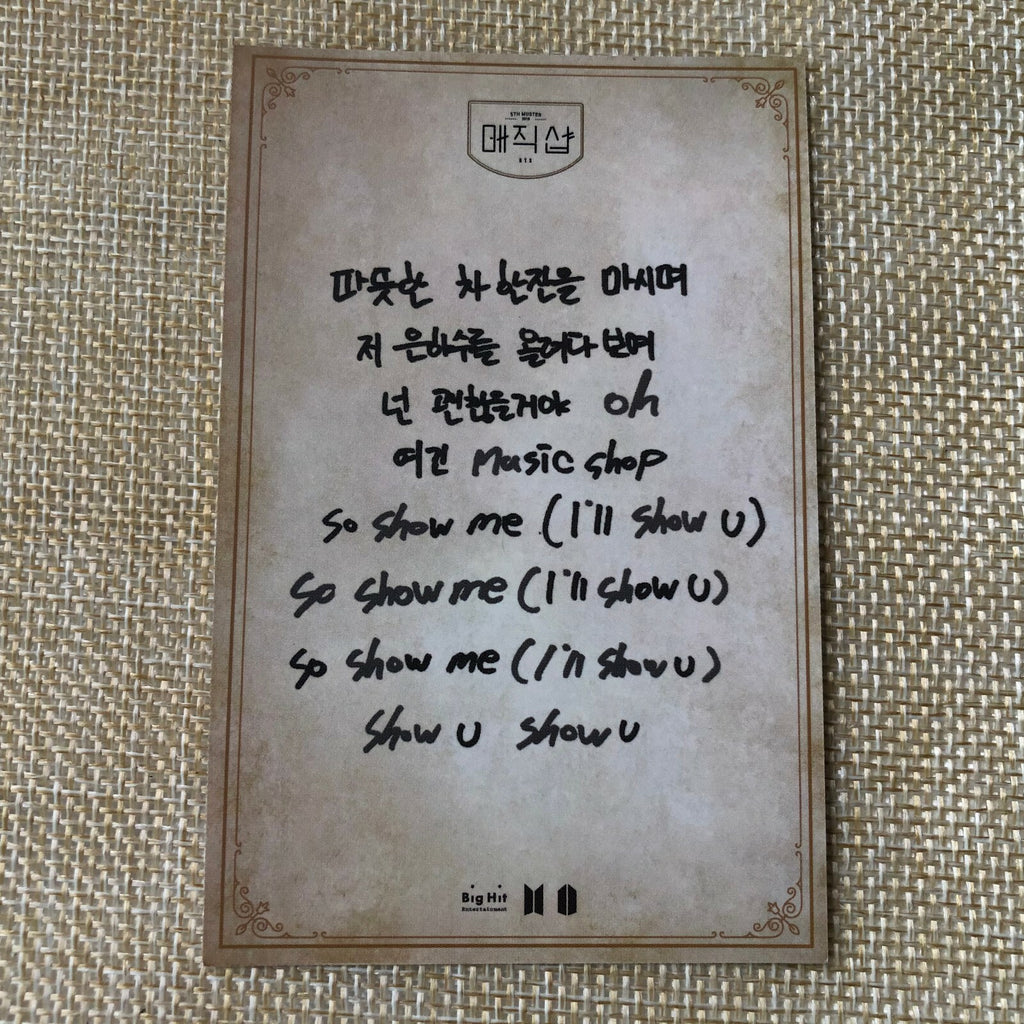 5TH MUSTER
매직샵
BTS
따뜻한 차 한잔을 마시며
저 은하수를 올려다 보며
넌 괜찮을거야 oh
여긴 Magic shop
so show me (I'll show U)
so show me (I'll show U)
so show me (I'll show U)
Show U show U
BigHit
Entertainment